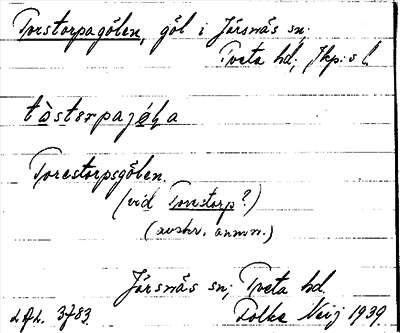 Torstorpagölen, göl i Järsnäs sn;
Tveta hd; Jkp:s l.
tòsterpajø̀la
Torestorpsgölen.
(vid Torestorp?)
(avskr. anm.)
Järsnäs sn; Tveta hd.
L.A.L. 3783. Folke Neij 1939.